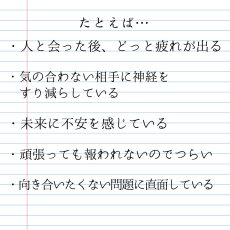 たとえば…
・人と会った後、どっと疲れが出る
・気の合わない相手に神経を
すり減らしている
・未来に不安を感じている
・頑張っても報われないのでつらい
・向き合いたくない問題に直面している